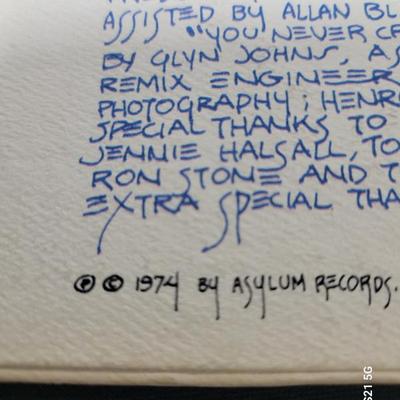 ASSISTED BY ALLAN BL
"YOU NEVER CR
BY GLYN JOHNS, AS
REMIX ENGINEER
PHOTOGRAPHY; HENR
SPECIAL THANKS TO
JENNIE HALSALL, TO
RON STONE AND T
EXTRA SPECIAL THA
℗ © 1974 BY ASYLUM RECORDS.
S21 5G